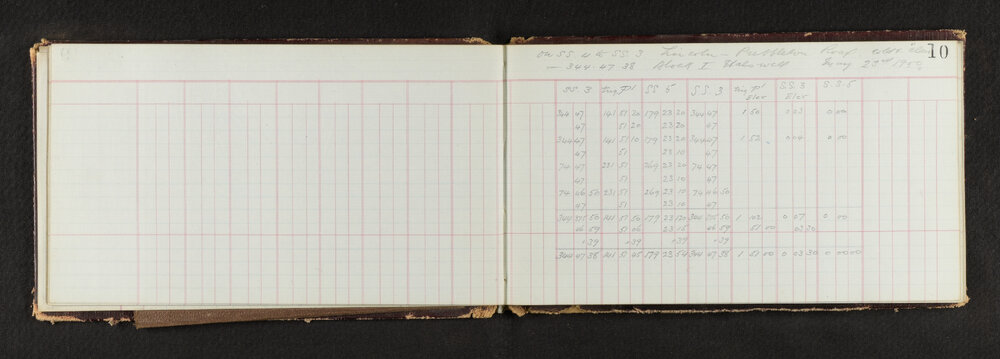 10
on S.S. 4 to S.S. 3 Lincoln - Prebbleton Road
- 344 · 47 · 38 Block I Halswell May 23rd 1950
S.S. 3 Trig P1 S.S 5 S.S. 3 Trig P1 Elev S.S. 3 Elev S.S. 5
344 47 141 51 20 179 23 20 344 47 1 50 0 03 0 00
47 51 20 23 20 47
344 47 141 51 10 179 23 20 344 47 1 52 0 04 0 00
47 51 23 10 47
74 47 231 51 269 23 20 74 47
47 51 23 10 47
74 46 50 231 51 269 23 10 74 46 50
47 51 23 10 47
344 50 141 51 50 179 23 120 344 50 1 102 0 07 0 00
46 59 51 06 23 15 46 59 51 00 03 30
+39 +39 +39 +39
344 47 38 141 51 45 179 23 54 344 47 38 1 51 00 0 03 30 0 00 00